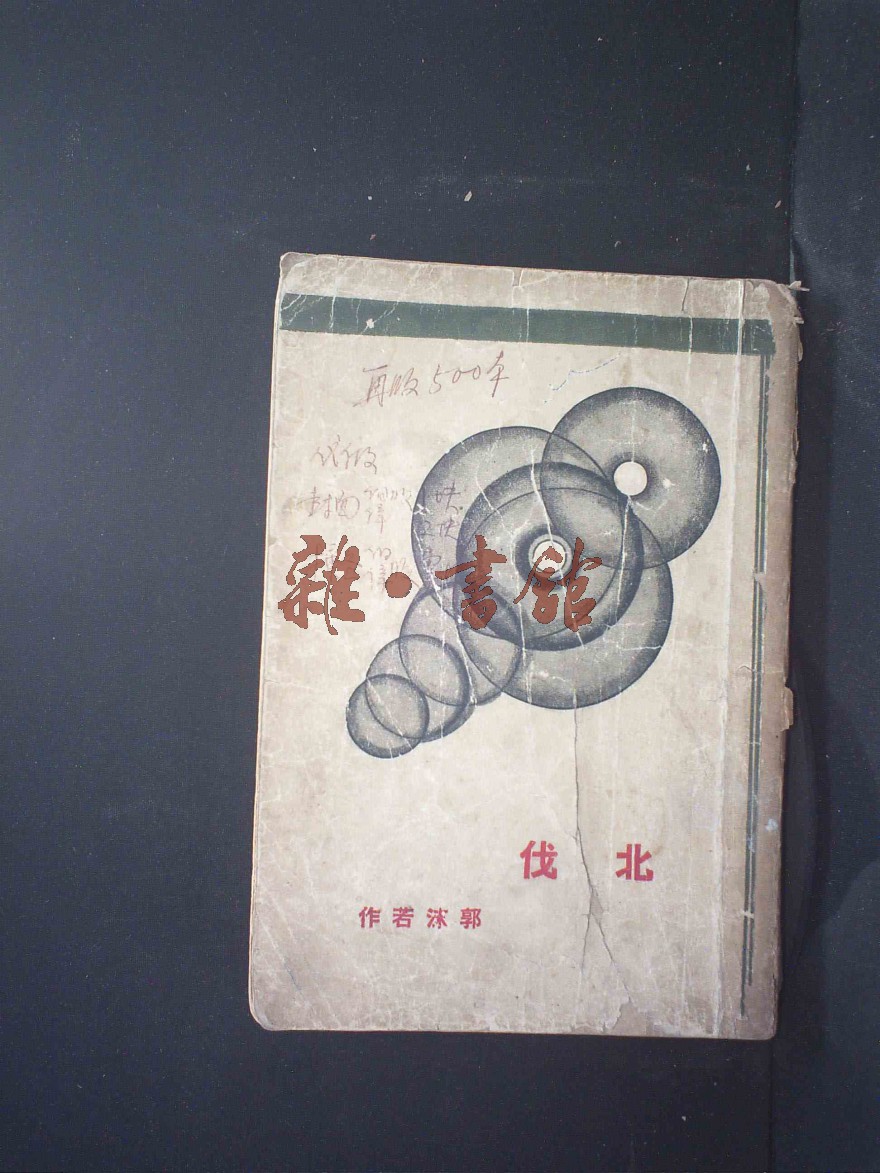 再版500本
代做
封面
雜·書館
北伐
郭沫若作